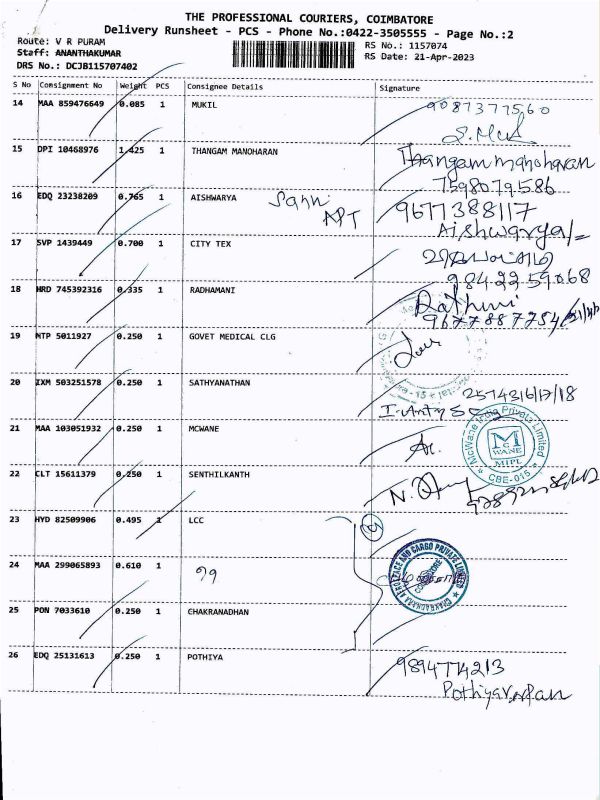 THE PROFESSIONAL COURIERS, COIMBATORE
Delivery Runsheet - PCS - Phone No.:0422-3505555 - Page No.:2
Route: V R PURAM
RS No.: 1157074
Staff: ANANTHAKUMAR
RS Date: 21-Apr-2023
DRS No.: DCJB115707402
S No Consignment No Weight PCS Consignee Details Signature
14 MAA 859476649 0.085 1 MUKIL
9087377560
15 DPI 10468976 1.425 1 THANGAM MANOHARAN
Thangam manoharan
7598079586
16 EDQ 23238209 0.765 1 AISHWARYA
APT
9677388117
Aishwarya/=
17 SVP 1439449 0.700 1 CITY TEX
98422 59068
18 HRD 745392316 0.335 1 RADHAMANI
9677887754
19 NTP 5011927 0.250 1 GOVET MEDICAL CLG
20 IXM 503251578 0.250 1 SATHYANATHAN
2574316/17/18
21 MAA 103051932 0.250 1 MCWANE
McWane India Private Limited
MCWANE
MIPL
CBE-015
22 CLT 15611379 0.250 1 SENTHILKANTH
23 HYD 82509906 0.495 1 LCC
24 MAA 299065893 0.610 1
CHAKRADHARA AEROSPACE AND CARGO PRIVATE LIMITED
COIMBATORE
25 PON 7033610 0.250 1 CHAKRANADHAN
26 EDQ 25131613 0.250 1 POTHIYA
9894774213